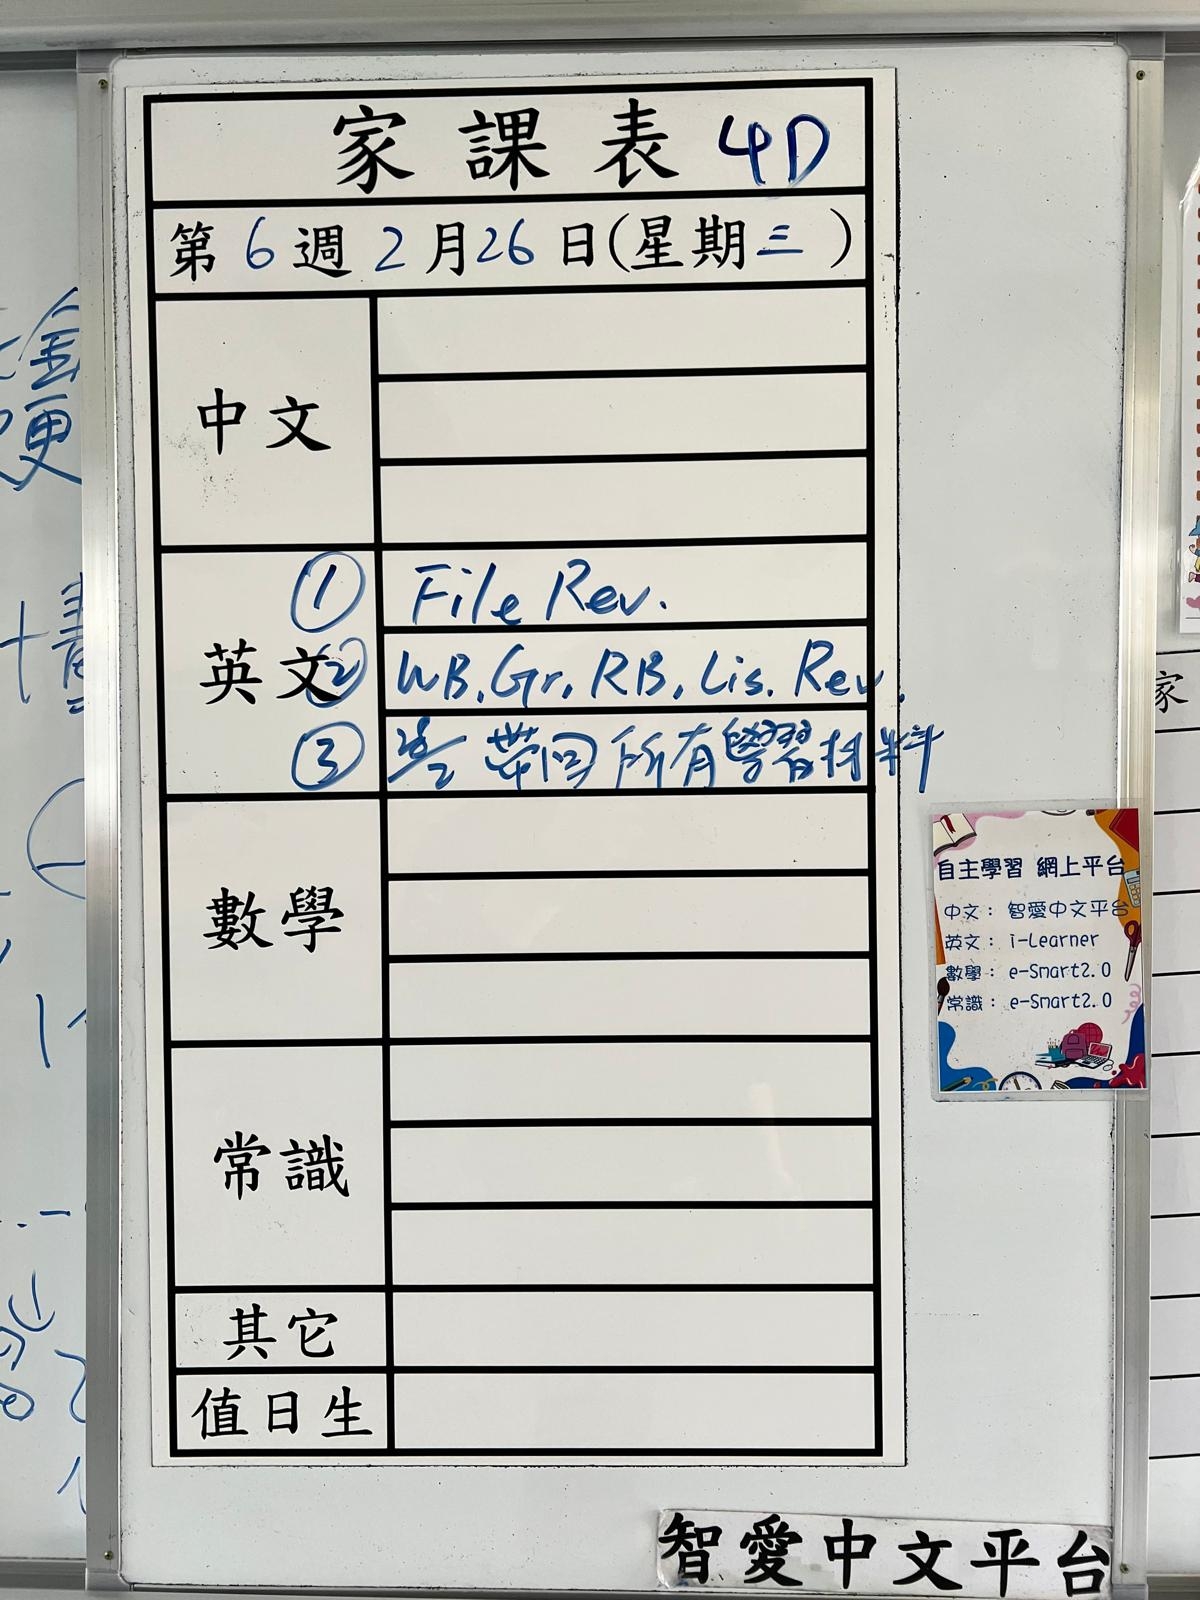 家課表 4D
第6週2月26日(星期三)
中文
英文
① File Rev.
② WB, Gr, RB, Lis. Rev.
③ 帶回所有學習材料
數學
常識
其它
值日生
自主學習 網上平台
中文：智愛中文平台
英文：i-Learner
數學：e-Smart2.0
常識：e-Smart2.0
智愛中文平台
家